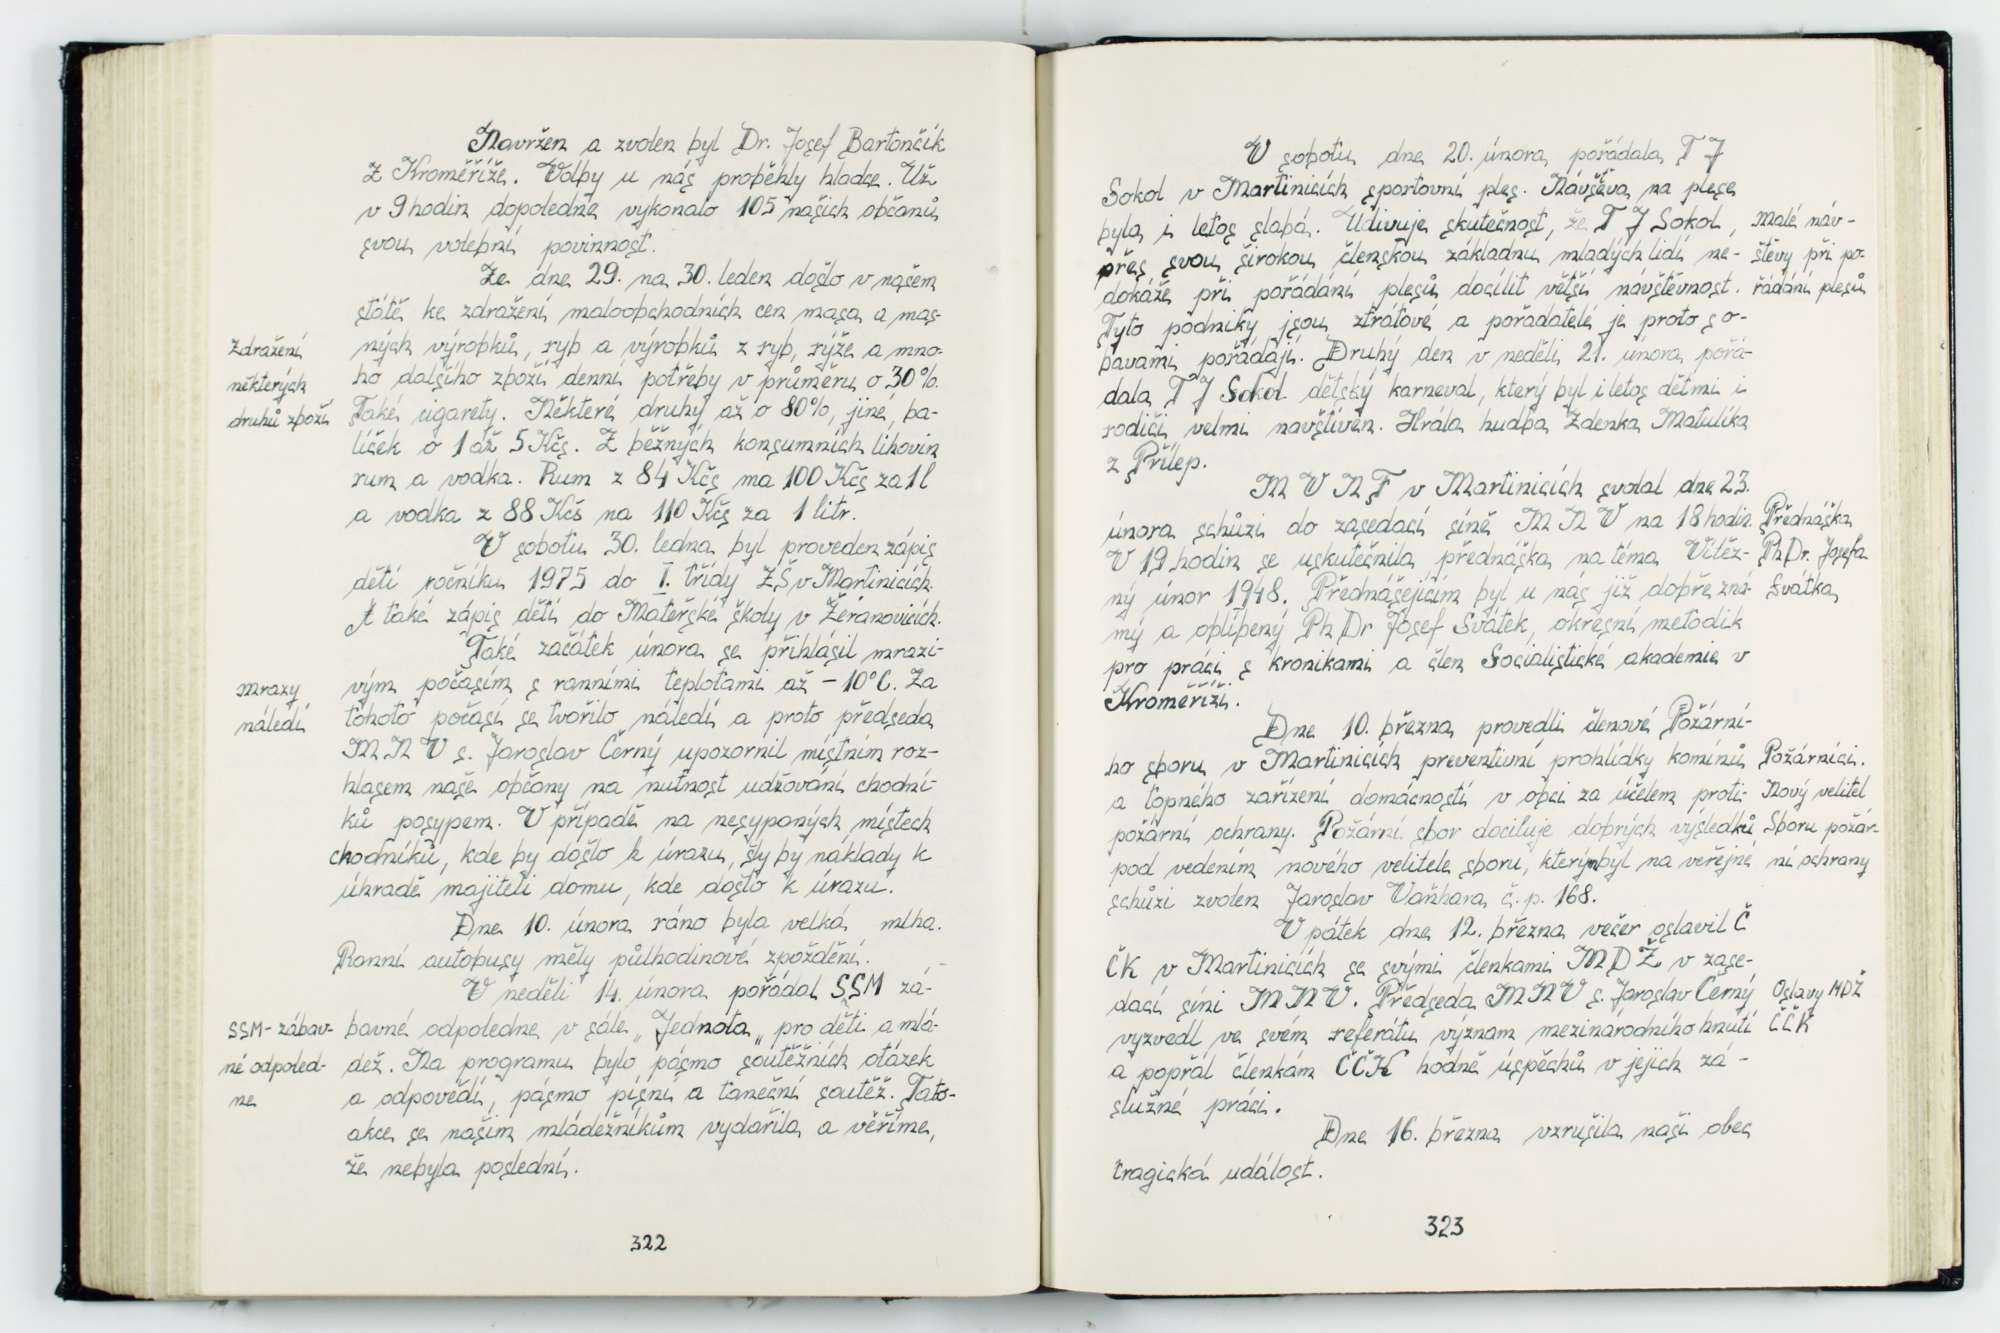 Navržen a zvolen byl Dr. Josef Bartončík
z Kroměříže. Volby u nás proběhly hladce. Už
v 9 hodin dopoledne vykonalo 105 našich občanů
svou volební povinnost.
Ze dne 29. na 30. leden došlo v našem
státě ke zdražení maloobchodních cen masa a mas-
ných výrobků, ryb a výrobků z ryb, rýže a mno-
ho dalšího zboží denní potřeby v průměru o 30%.
Také cigarety. Některé druhy až o 80%, jiné, ba-
líček o 1 až 5 Kčs. Z běžných konsumních lihovin
rum a vodka. Rum z 84 Kčs na 100 Kčs za 1 l
a vodka z 88 Kčs na 110 Kčs za 1 litr.
V sobotu 30. ledna byl proveden zápis
dětí ročníku 1975 do I. třídy ZŠ v Martinicích.
A také zápis dětí do Mateřské školy v Žeranovicích.
Také začátek února se přihlásil mrazi-
vým počasím s ranními teplotami až -10°C. Za
tohoto počasí se tvořilo náledí a proto předseda
MNV s. Jaroslav Černý upozornil místním roz-
hlasem naše občany na nutnost udržování chodní-
ků posypem. V případě na nesypaných místech
chodníků, kde by došlo k úrazu, šly by náklady k
úhradě majiteli domu, kde došlo k úrazu.
Dne 10. února ráno byla velká mlha.
Ranní autobusy měly půlhodinové zpoždění.
V neděli 14. února pořádal SSM zá-
bavné odpoledne v sále „Jednota„ pro děti a mlá-
dež. Na programu bylo pásmo soutěžních otázek
a odpovědí, pásmo písní a taneční soutěž. Tato-
akce se našim mládežníkům vydařila a věříme,
že nebyla poslední.
Zdražení
některých
druhů zboží
mrazy
náledí
SSM-zábav-
né odpoled-
ne
322
V sobotu dne 20. února pořádala TJ
Sokol v Martinicích sportovní ples. Návštěva na plese
byla i letos slabá. Udivuje skutečnost, že TJ Sokol,
přes svou širokou členskou základnu mladých lidí ne-
dokáže při pořádání plesů docílit větší návštěvnost.
Tyto podniky jsou ztrátové a pořadatelé je proto s o-
bavami pořádají. Druhý den v neděli 21. února pořá-
dala TJ Sokol dětský karneval, který byl i letos dětmi i
rodiči velmi navštíven. Hrála hudba Zdenka Matulíka
z Přílep.
MVNF v Martinicích svolal dne 23.
února schůzi do zasedací síně MNV na 18 hodin.
V 19 hodin se uskutečnila přednáška na téma Vítěz-
ný únor 1948. Přednášejícím byl u nás již dobře zná-
mý a oblíbený PhDr Josef Svátek, okresní metodik
pro práci s kronikami a člen Socialistické akademie v
Kroměříži.
Dne 10. března provedli členové Požární-
ho sboru v Martinicích preventivní prohlídky komínů
a topného zařízení domácností v obci za účelem proti-
požární ochrany. Požární sbor dociluje dobrých výsledků
pod vedením nového velitele sboru, kterým byl na veřejné
schůzi zvolen Jaroslav Vaňhara č.p. 168.
V pátek dne 12. března večer oslavil Č
ČK v Martinicích se svými členkami MDŽ v zase-
dací síni MNV. Předseda MNV s. Jaroslav Černý
vyzvedl ve svém referátu význam mezinarodního hnutí
a popřál členkám ČČK hodně úspěchů v jejich zá-
služné práci.
Dne 16. března vzrušila naši obec
tragická událost.
Malé náv-
štěvy při po-
řádání plesů
Přednáška
PhDr. Josefa
Svátka
Požárníci.
Nový velitel
Sboru požár-
ní ochrany
Oslavy MDŽ
ČČK
323